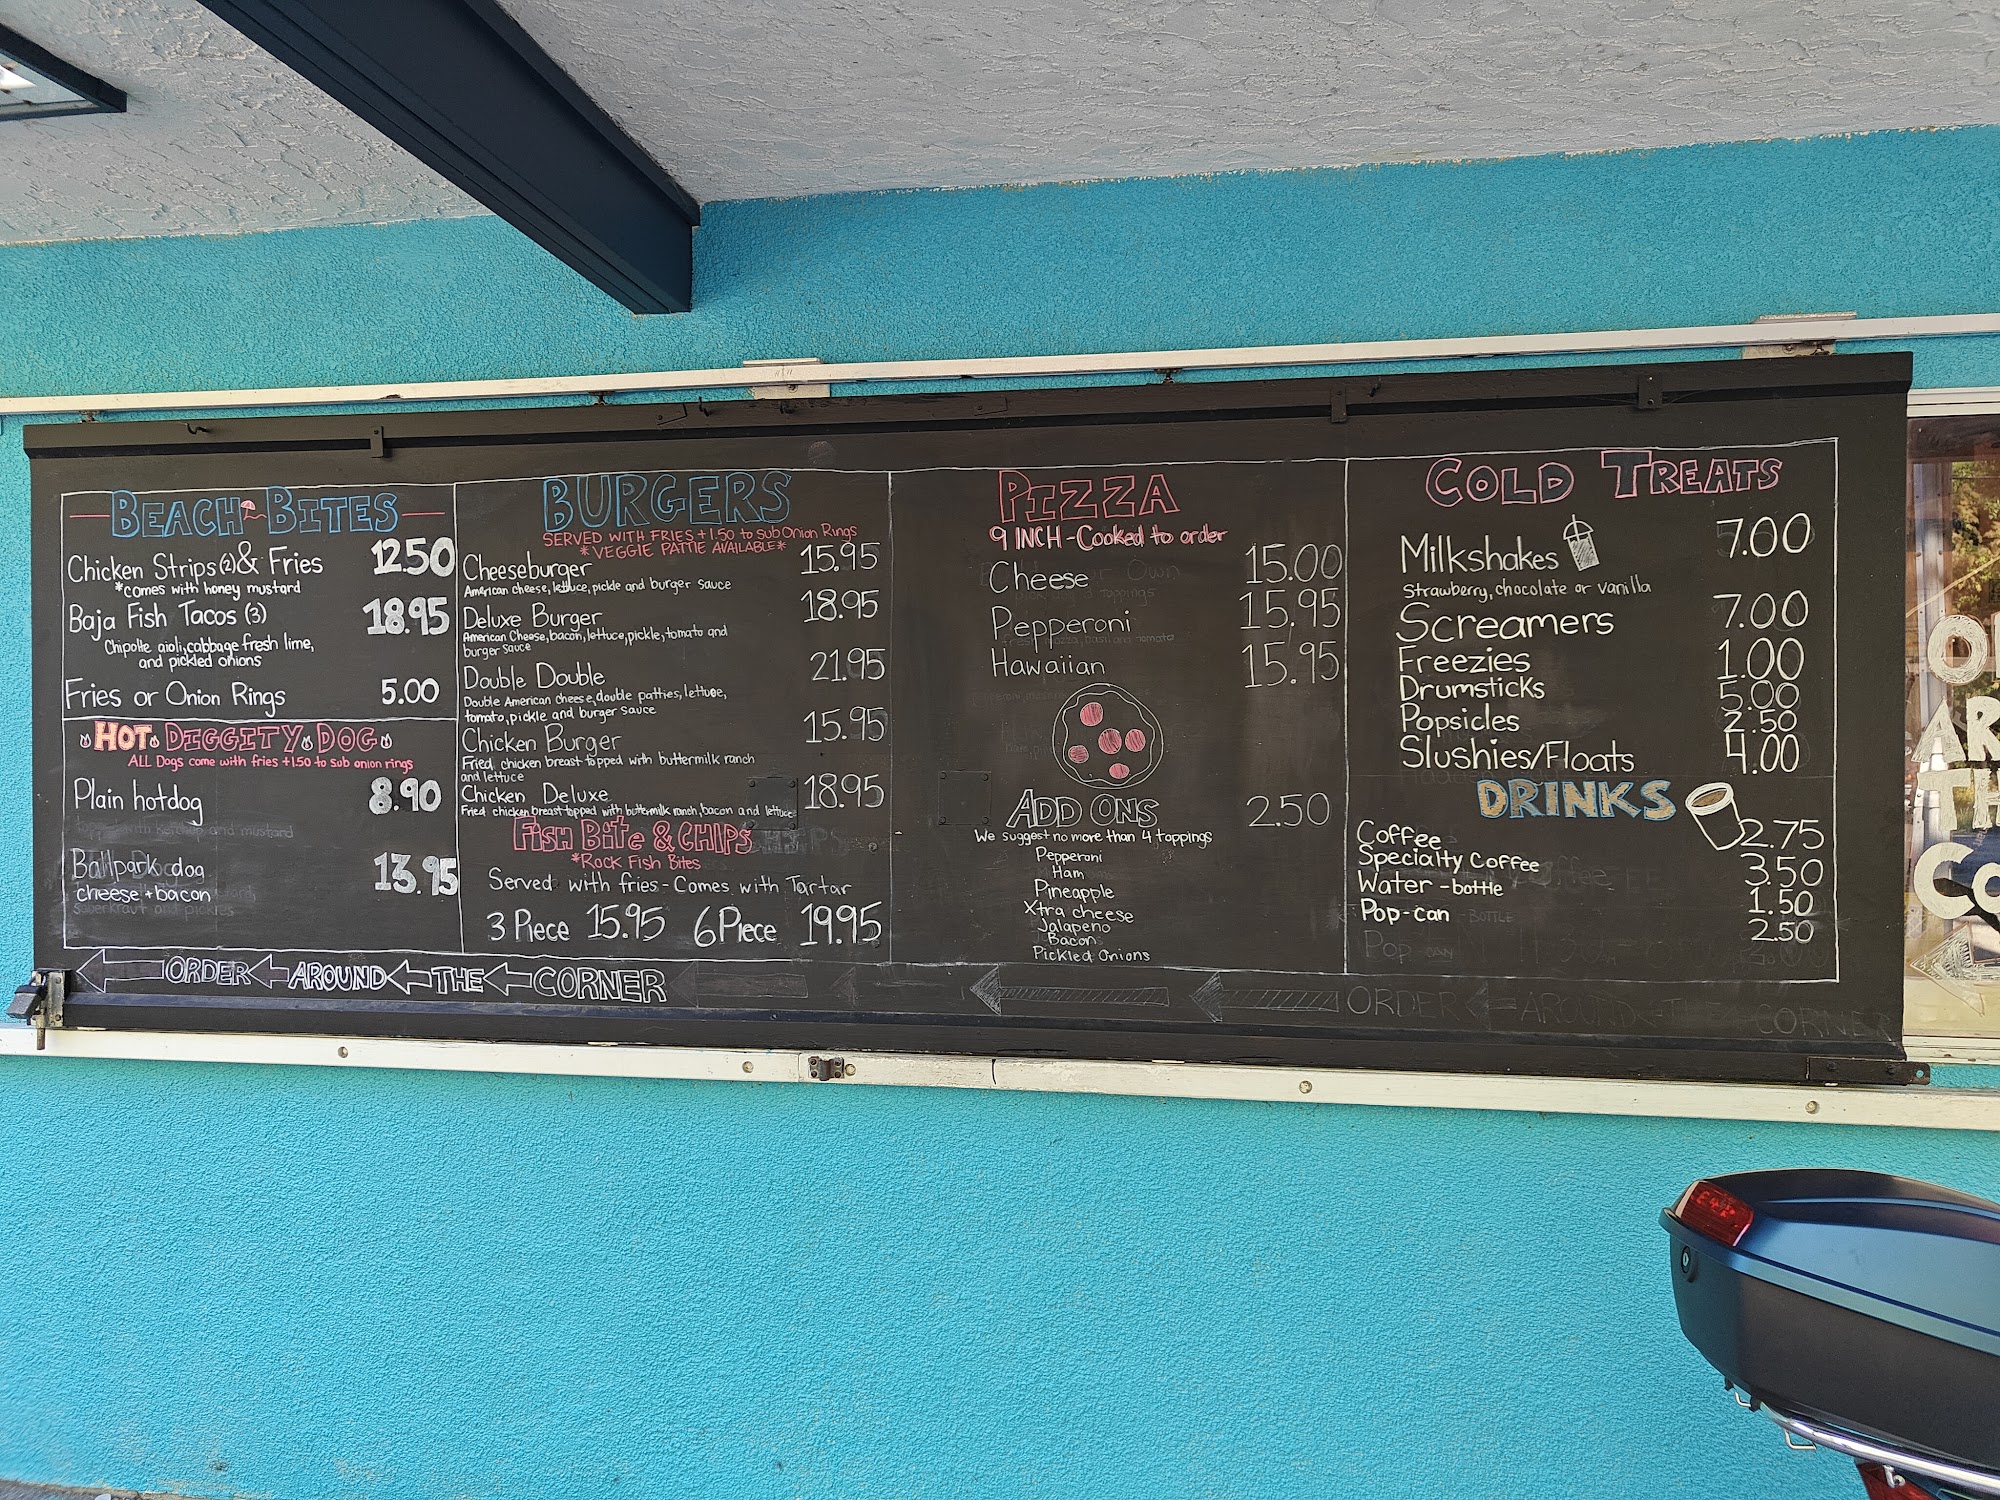 BEACH BITES
Chicken Strips (2) & Fries 12.50
*comes with honey mustard
Baja Fish Tacos (3) 18.95
Chipotle aioli, cabbage fresh lime,
and pickled onions
Fries or Onion Rings 5.00
HOT DIGGITY DOG
ALL Dogs come with fries +1.50 to sub onion rings
Plain hotdog 8.90
Ballpark dog 13.95
cheese + bacon
BURGERS
SERVED WITH FRIES +1.50 to sub Onion Rings
*VEGGIE PATTIE AVAILABLE*
Cheeseburger 15.95
American cheese, lettuce, pickle and burger sauce
Deluxe Burger 18.95
American Cheese, bacon, lettuce, pickle, tomato and
burger sauce
Double Double 21.95
Double American cheese, double patties, lettuce,
tomato, pickle and burger sauce
Chicken Burger 15.95
Fried chicken breast topped with buttermilk ranch
and lettuce
Chicken Deluxe 18.95
Fried chicken breast topped with buttermilk ranch, bacon and lettuce
FISH BITE & CHIPS
*ROCK FISH BITES
Served with fries - Comes with Tartar
3 Piece 15.95 6 Piece 19.95
PIZZA
9 INCH - Cooked to order
Cheese 15.00
Pepperoni 15.95
Hawaiian 15.95
ADD ONS 2.50
We suggest no more than 4 toppings
Pepperoni
Ham
Pineapple
Xtra cheese
Jalapeno
Bacon
Pickled Onions
COLD TREATS
Milkshakes 7.00
Strawberry, chocolate or vanilla
Screamers 7.00
Freezies 1.00
Drumsticks 5.00
Popsicles 2.50
Slushies/Floats 4.00
DRINKS
Coffee 2.75
Specialty Coffee 3.50
Water - bottle 1.50
Pop - can 2.50
ORDER AROUND THE CORNER
ORDER AROUND THE CORNER